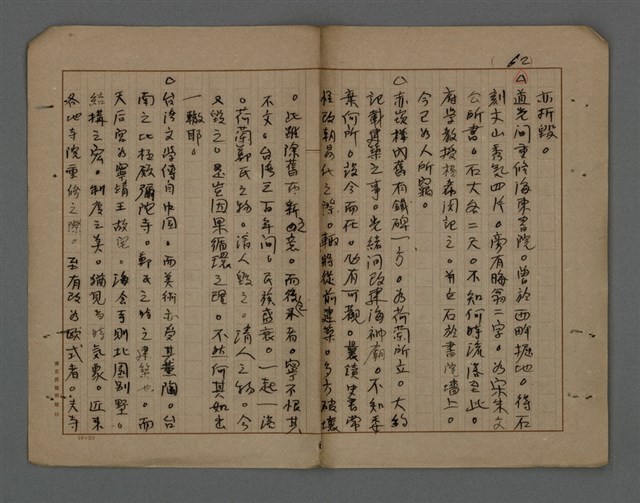 （62）
亦折毀。
△道光間重修海東書院。曾於西畔掘地。得石
刻文山秀氣四片。旁有晦翁二字。為宋朱文
公所書。石大各二尺。不知何時流落至此。
府學教授楊希閔記之。並立石於書院牆上。
今已為人所竊。
△赤崁樓內舊有鐵碑一方。為荷蘭所立。大約
記載建築之事。光緒間改建海神廟。不知委
棄何所。設今而在。乃有可觀。曩讀史書常
怪改朝易代之際。輒將從前建築。多方破壞
。此雖除舊布新之意。而後之來者。寧不恨其
不文。台灣三百年間。民族盛衰。一起一落
。荷蘭鄭氏之物。清人毀之。清人之物。今
又毀之。是豈因果循環之理。不然何其如出
一轍耶。
△台灣文學傳自中國。而美術亦受其薰陶。台
南之北極殿彌陀寺。鄭氏之時之建築也。而
天后宮為寧靖王故宅。海會寺則北園別墅。
結構之宏。制度之美。猶見當時氣象。近來
各地寺院重修之際。至有改為歐式者。夫寺